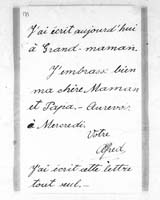 J'ai écrit aujourd'hui
à Grand-maman.
J'embrasse bien
ma chère Maman
et Papa - Aurevoir
à Mercredi.
Votre
Alfred
J'ai écrit cette lettre
tout seul. -